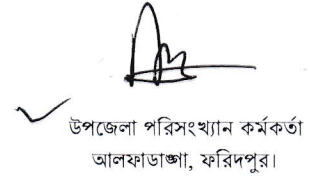 উপজেলা পরিসংখ্যান কর্মকর্তা
আলফাডাঙ্গা, ফরিদপুর।